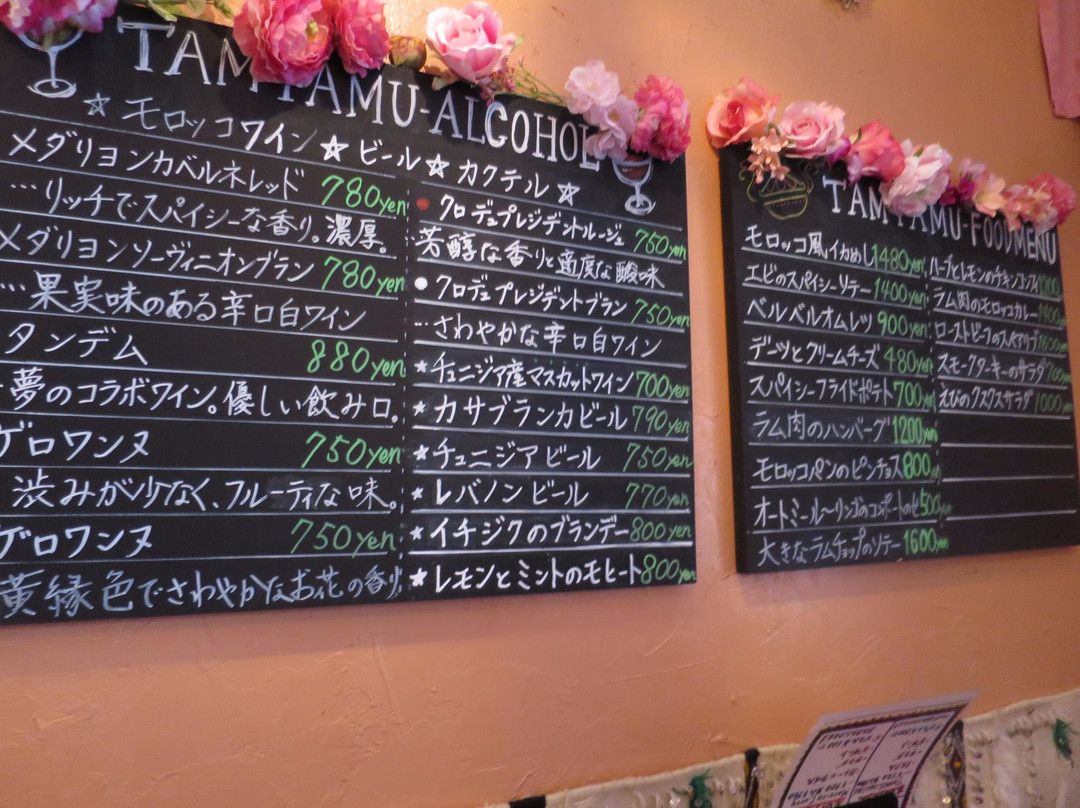 TAMTAMU-ALCOHOL
☆モロッコワイン☆ビール☆カクテル☆
メダリヨンカベルネレッド 780yen
…リッチでスパイシーな香り。濃厚。
メダリヨンソーヴィニオンブラン 780yen
…果実味のある辛口白ワイン
タンデム 880yen
夢のコラボワイン。優しい飲み口。
ゲロワンヌ 750yen
渋みが少なく、フルーティな味。
ゲロワンヌ 750yen
黄緑色でさわやかなお花の香り
クロデュプレジデントルージュ 750yen
芳醇な香りと適度な酸味
クロデュプレジデントブラン 750yen
…さわやかな辛口白ワイン
★チュニジア産マスカットワイン 700yen
★カサブランカビール 790yen
★チュニジアビール 750yen
★レバノンビール 770yen
★イチジクのブランデー 800yen
★レモンとミントのモヒート 800yen
TAMTAMU-FOODMENU
モロッコ風イカめし 1480yen
エビのスパイシーソテー 1400yen
ベルベルオムレツ 900yen
デーツとクリームチーズ 480yen
スパイシーフライドポテト 700yen
ラム肉のハンバーグ 1200yen
モロッコパンのピンチョス 800yen
オートミール〜リンゴのコンポートのせ 500yen
大きなラムチョップのソテー 1600yen
ハーブとレモンのチキンコンフィ
ラム肉のモロッコカレー
ローストビーフのスペアリブ
スモークターキーのサラダ
えびのクスクスサラダ 1000yen